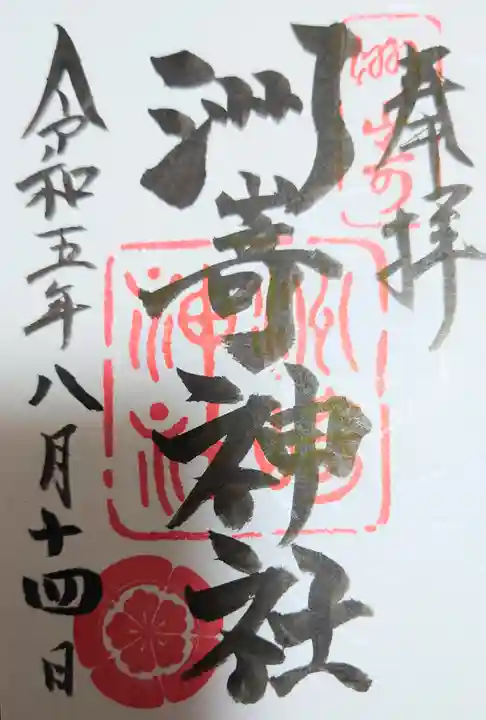 奉拝
洲嵜神社
令和五年八月十四日